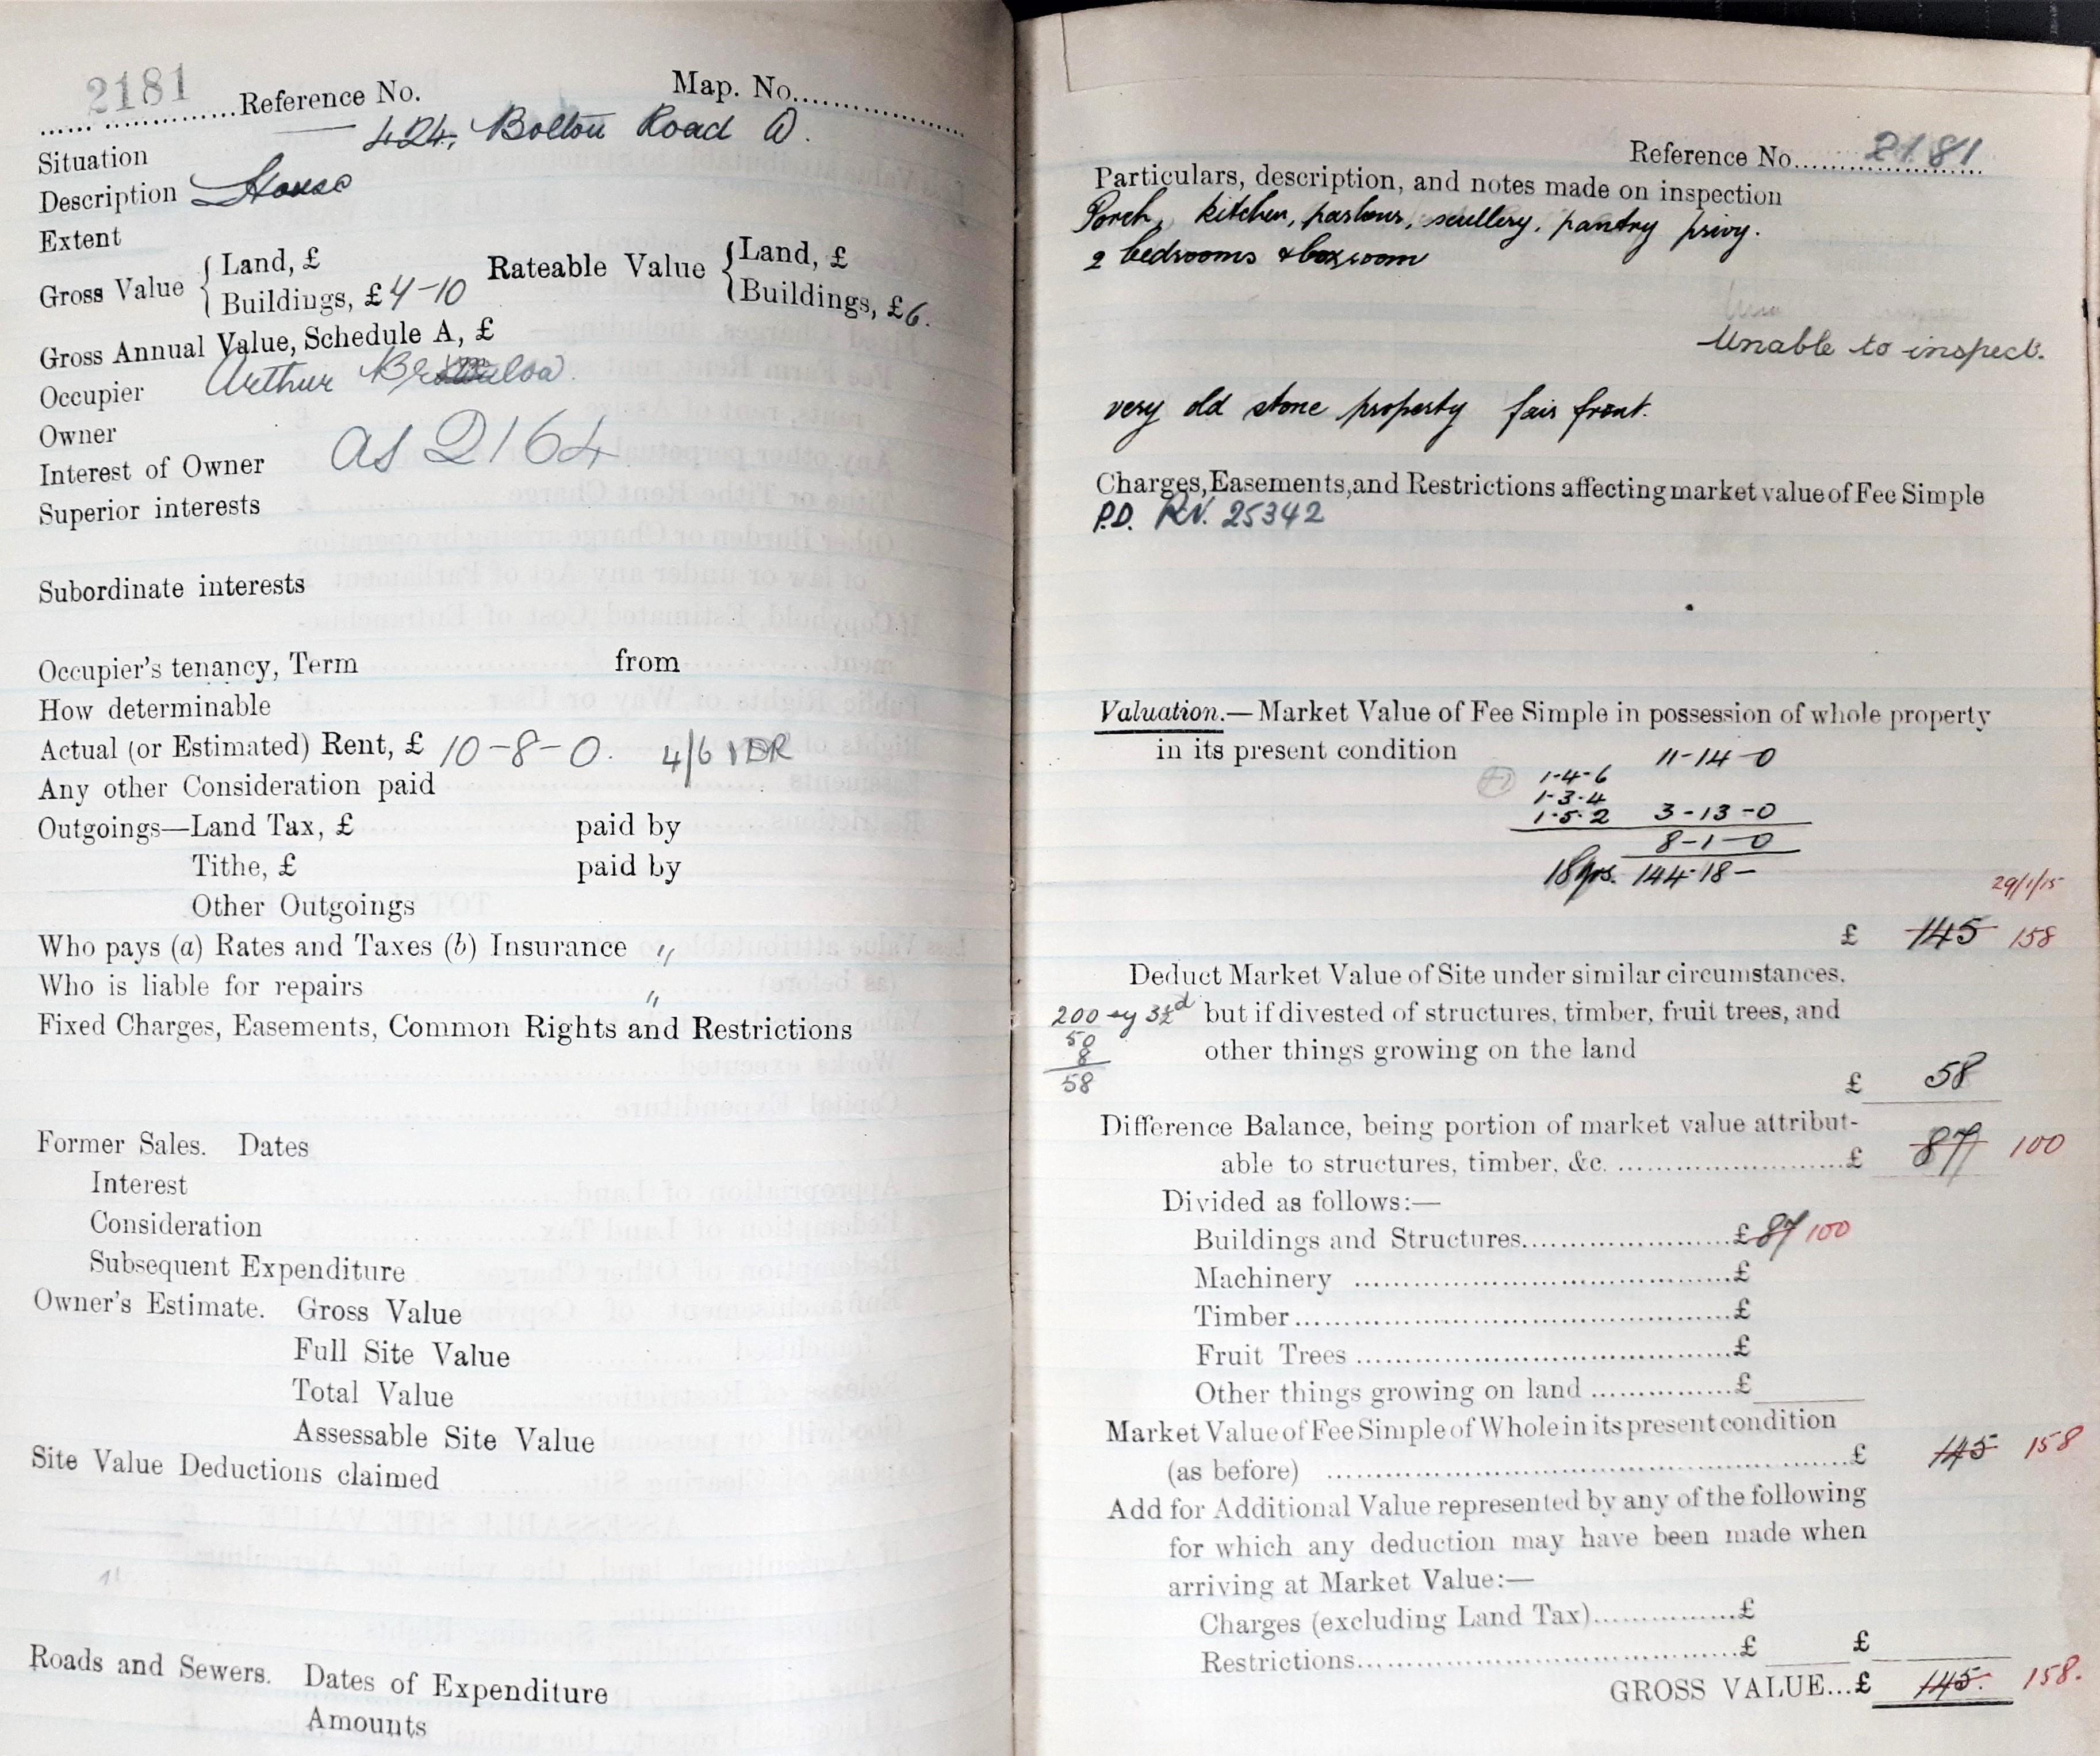 2181
Reference No. Map. No.
424, Bolton Road D.
Situation
Description House
Extent
Gross Value { Land, £ Rateable Value { Land, £
Buildings, £ 4-10 Buildings, £ 6.
Gross Annual Value, Schedule A, £
Occupier Arthur
Owner
Interest of Owner as 2164
Superior interests
Subordinate interests
Occupier's tenancy, Term from
How determinable
Actual (or Estimated) Rent, £ 10-8-0. 4/6
Any other Consideration paid
Outgoings—Land Tax, £ paid by
Tithe, £ paid by
Other Outgoings
Who pays (a) Rates and Taxes (b) Insurance "
Who is liable for repairs "
Fixed Charges, Easements, Common Rights and Restrictions
Former Sales. Dates
Interest
Consideration
Subsequent Expenditure
Owner's Estimate. Gross Value
Full Site Value
Total Value
Assessable Site Value
Site Value Deductions claimed
Roads and Sewers. Dates of Expenditure
Amounts
Reference No. 2181
Particulars, description, and notes made on inspection
Porch, kitchen, parlour, scullery, pantry privy.
2 bedrooms & boxroom
Unable to inspect.
very old stone property fair front.
Charges, Easements, and Restrictions affecting market value of Fee Simple
P.D. RN. 25342
Valuation.—Market Value of Fee Simple in possession of whole property
in its present condition 11-14-0
1-4-6
1-3-4
1-5-2 3-13-0
8-1-0
18 yrs. 144-18-
29/1/15
£ 145 158
Deduct Market Value of Site under similar circumstances,
200 sy 3½d but if divested of structures, timber, fruit trees, and
50
8 other things growing on the land
58
£ 58
Difference Balance, being portion of market value attribut-
able to structures, timber, &c. £ 87 100
Divided as follows:—
Buildings and Structures £ 87 100
Machinery £
Timber £
Fruit Trees £
Other things growing on land £
Market Value of Fee Simple of Whole in its present condition
(as before) £ 145 158
Add for Additional Value represented by any of the following
for which any deduction may have been made when
arriving at Market Value:—
Charges (excluding Land Tax) £
Restrictions £ £
GROSS VALUE...£ 145. 158.